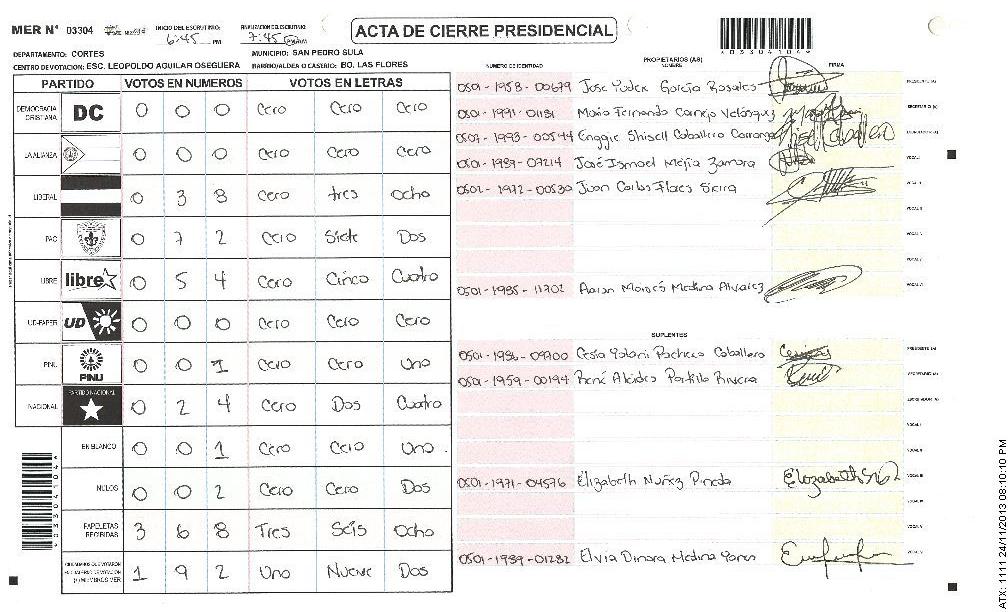 MER Nº 03304
INICIO DEL ESCRUTINIO:
6:45 PM
FINALIZACION DEL ESCRUTINIO:
7:45
ACTA DE CIERRE PRESIDENCIAL
*03304104*
DEPARTAMENTO: CORTES
MUNICIPIO: SAN PEDRO SULA
CENTRO DE VOTACION: ESC. LEOPOLDO AGUILAR OSEGUERA
BARRIO/ALDEA O CASERIO: BO. LAS FLORES
PARTIDO VOTOS EN NUMEROS VOTOS EN LETRAS
DEMOCRACIA CRISTIANA DC 0 0 0 Cero Cero Cero
LA ALIANZA 0 0 0 Cero Cero Cero
LIBERAL 0 3 8 Cero tres Ocho
PAC 0 7 2 Cero Siete Dos
LIBRE libre 0 5 4 Cero Cinco Cuatro
UD-FAPER UD 0 0 0 Cero Cero Cero
PINU PINU 0 0 1 Cero Cero Uno
NACIONAL PARTIDO NACIONAL 0 2 4 Cero Dos Cuatro
EN BLANCO 0 0 1 Cero Cero Uno.
NULOS 0 0 2 Cero Cero Dos
PAPELETAS RECIBIDAS 3 6 8 Tres Seis Ocho
1 9 2 Uno Nueve Dos
NUMERO DE IDENTIDAD
PROPIETARIOS (AS)
NOMBRE
FIRMA
0501-1958-00679 Jose Yudex Garcia Rosales PRESIDENTE (A)
0501-1991-01181 Mario Fernando Cornejo Velasquez SECRETARIO (A)
0507-1993-00544 Enggie Shisell Caballero Carranza
0501-1989-07214 José Ismael Mejía Zamora VOCAL I
0501-1972-00530 Juan Carlos Flores Sierra
0501-1985-11702 Aaron Moisés Medina Alvarez
SUPLENTES
0501-1986-09700 Cesia Yolani Pacheco Caballero PRESIDENTE (A)
0501-1959-00194 René Alcides Portillo Rivera SECRETARIO (A)
0501-1971-04576 Elizabeth Nuñez Pineda
0501-1989-01282 Elvia Dinora Medina
ATX: 1111 24/11/2013 08:10:10 PM